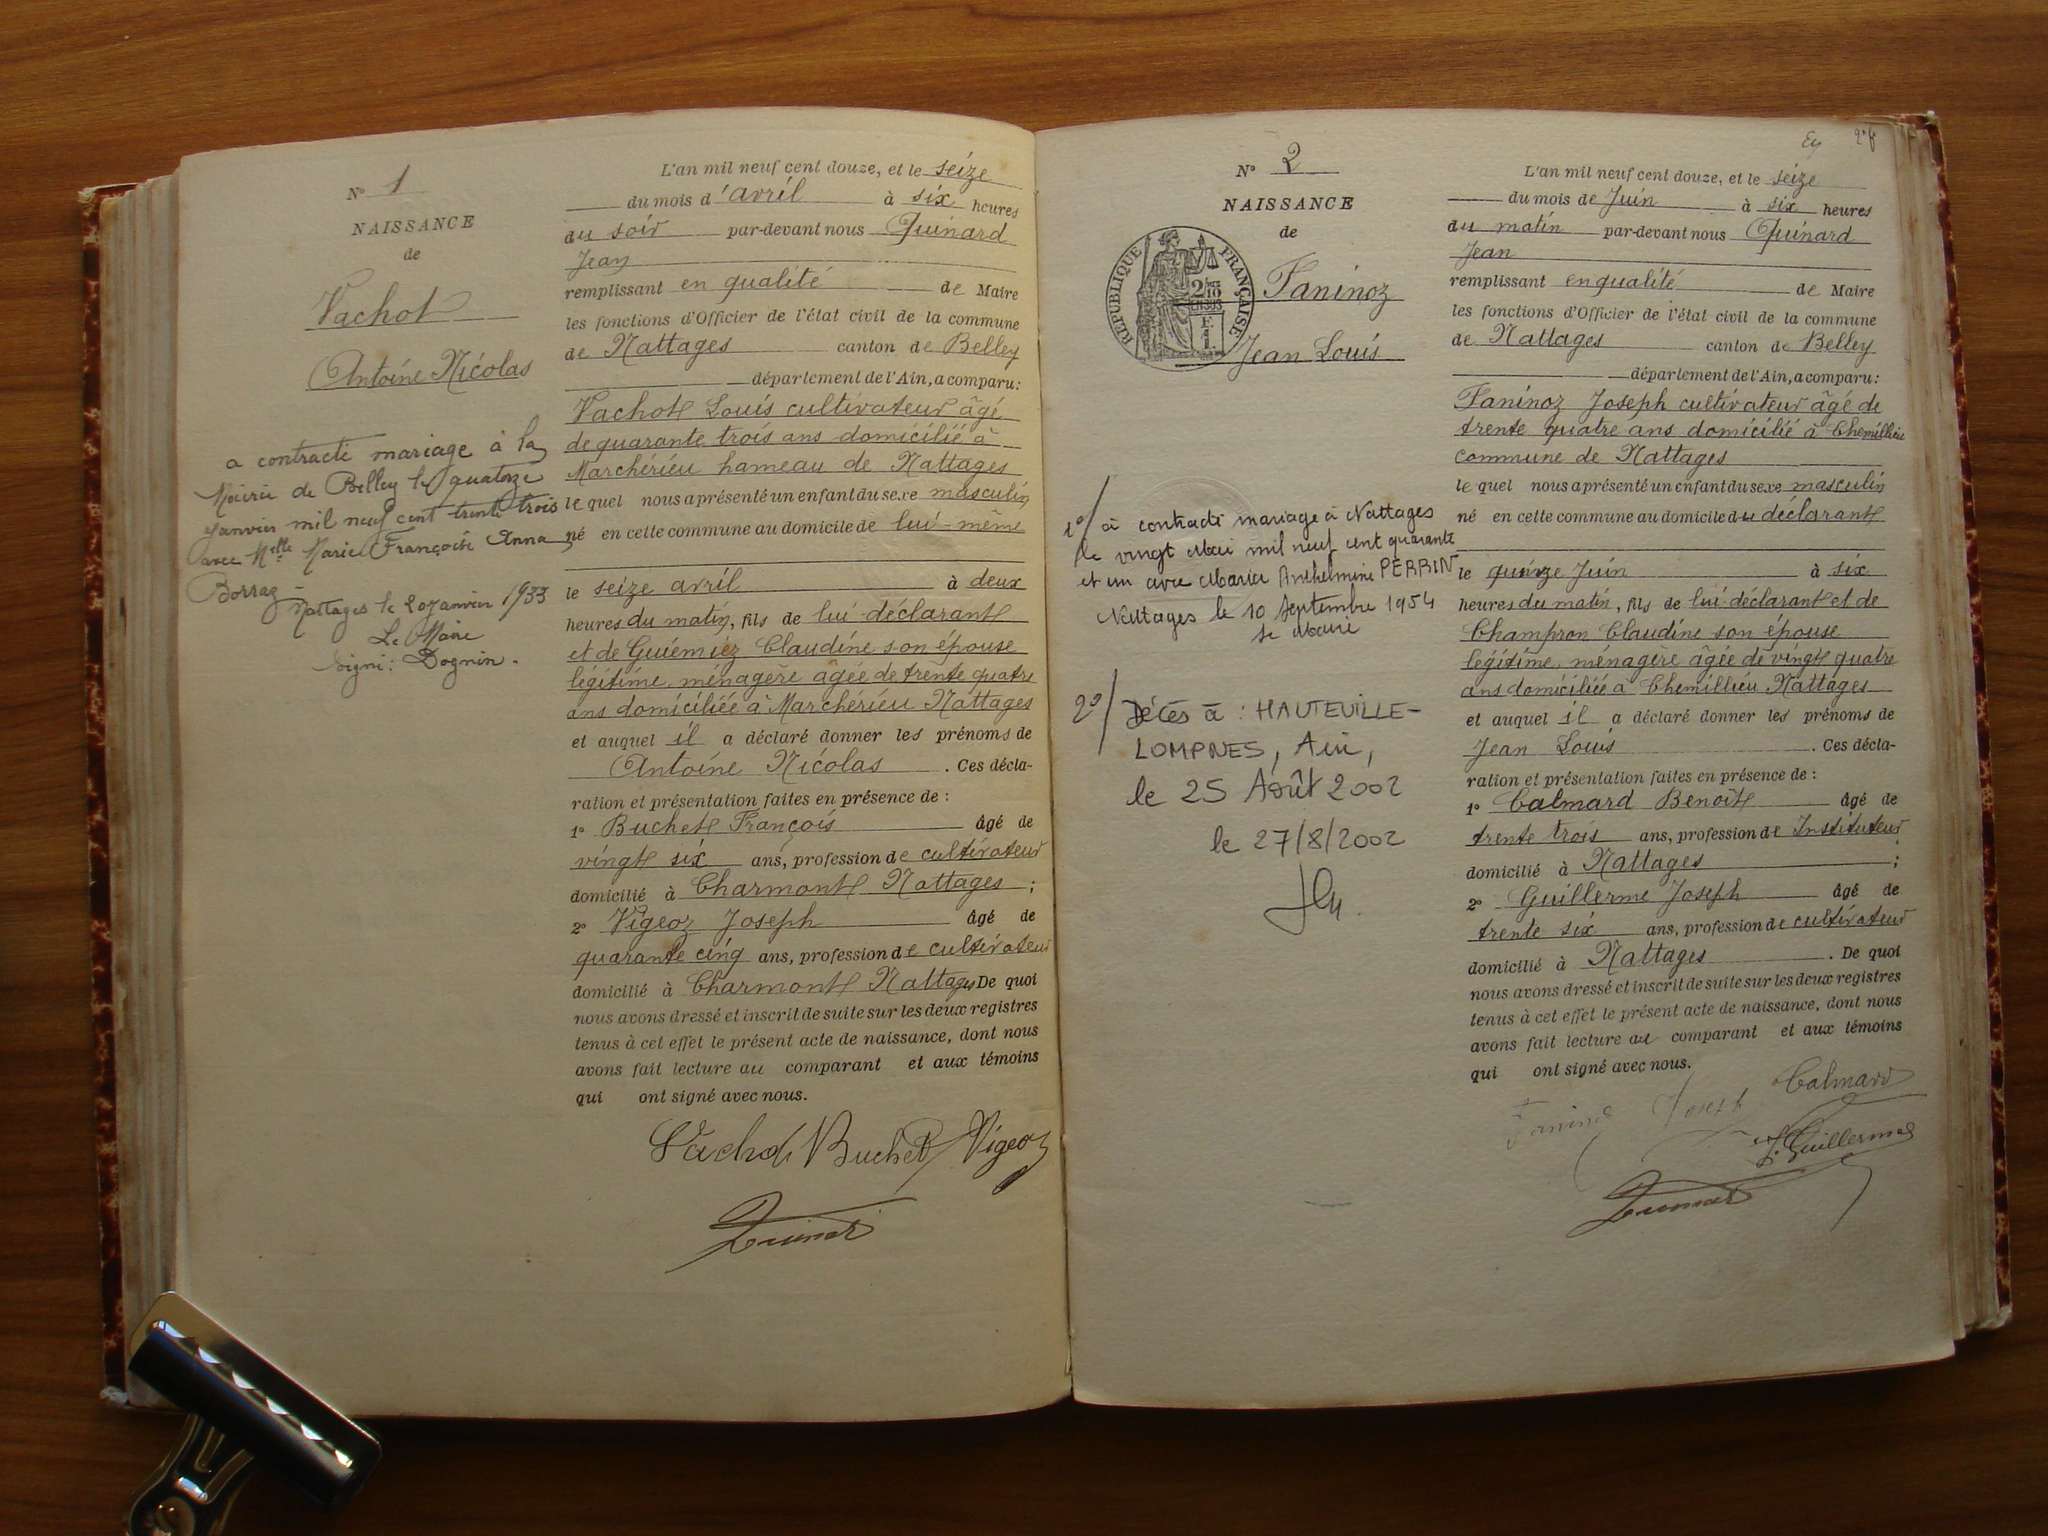 N° 1
NAISSANCE
de
Vachot
Antoine Nicolas
a contracté mariage à la
Mairie de Belley le quatorze
Janvier mil neuf cent trente trois
avec Melle Marie Françoise Anna
Borraz
Nattages le 20 Janvier 1933
Le Maire
Signé : Dognin.
L'an mil neuf cent douze, et le seize
du mois d'avril à six heures
du soir par-devant nous Quinard
Jean
remplissant en qualité de Maire
les fonctions d'Officier de l'état civil de la commune
de Nattages canton de Belley
département de l'Ain, a comparu :
Vachot Louis cultivateur âgé
de quarante trois ans domicilié à
Marchérieu hameau de Nattages
le quel nous a présenté un enfant du sexe masculin
né en cette commune au domicile de lui-même
le seize avril à deux
heures du matin, fils de lui déclarant
et de Guiémiez Claudine son épouse
légitime, ménagère âgée de trente quatre
ans domiciliée à Marchérieu Nattages
et auquel il a déclaré donner les prénoms de
Antoine Nicolas . Ces décla-
ration et présentation faites en présence de :
1° Buchet François âgé de
vingt six ans, profession de cultivateur
domicilié à Charmont Nattages ;
2° Vigeoz Joseph âgé de
quarante cinq ans, profession de cultivateur
domicilié à Charmont Nattages De quoi
nous avons dressé et inscrit de suite sur les deux registres
tenus à cet effet le présent acte de naissance, dont nous
avons fait lecture au comparant et aux témoins
qui ont signé avec nous.
Vachot Buchet Vigeoz
Quinard
2 f
N° 2
NAISSANCE
de
RÉPUBLIQUE FRANÇAISE
Faninoz
Jean Louis
1°/ à contracté mariage à Nattages
le vingt Mai mil neuf cent quarante
et un avec Marie Anthelmine PERRIN
Nattages le 10 Septembre 1954
le Maire
2°/ Décès à : HAUTEVILLE-
LOMPNES, Ain,
le 25 Août 2002
le 27/8/2002
L'an mil neuf cent douze, et le seize
du mois de Juin à six heures
du matin par-devant nous Quinard
Jean
remplissant en qualité de Maire
les fonctions d'Officier de l'état civil de la commune
de Nattages canton de Belley
département de l'Ain, a comparu :
Faninoz Joseph cultivateur âgé de
trente quatre ans domicilié à Chemillieu
commune de Nattages
le quel nous a présenté un enfant du sexe masculin
né en cette commune au domicile du déclarant
le quinze Juin à six
heures du matin, fils de lui déclarant et de
Champron Claudine son épouse
légitime, ménagère âgée de vingt quatre
ans domiciliée à Chemillieu Nattages
et auquel il a déclaré donner les prénoms de
Jean Louis . Ces décla-
ration et présentation faites en présence de :
1° Calmard Benoît âgé de
trente trois ans, profession de Instituteur
domicilié à Nattages ;
2° Guillerme Joseph âgé de
trente six ans, profession de cultivateur
domicilié à Nattages . De quoi
nous avons dressé et inscrit de suite sur les deux registres
tenus à cet effet le présent acte de naissance, dont nous
avons fait lecture au comparant et aux témoins
qui ont signé avec nous.
Faninoz Joseph Calmard
J. Guillerme
Quinard